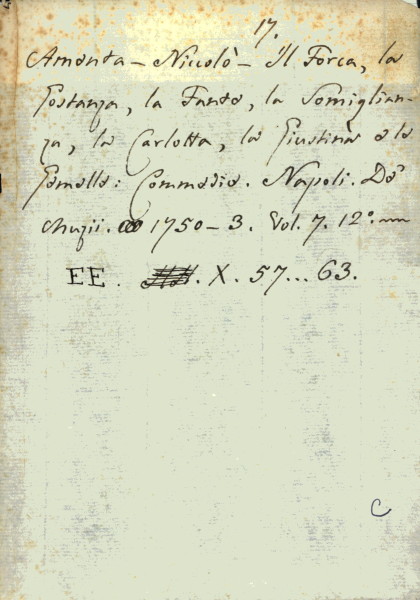 17.
Amenta - Niccolò - Il Forca, la
Costanza, la Fante, la Somiglian-
za, la Carlotta, la Giustina e le
Gemelle: Commedie. Napoli. De'
Muzii. 1750-3. Vol. 7. 12º.
EE. X. 57...63.
C